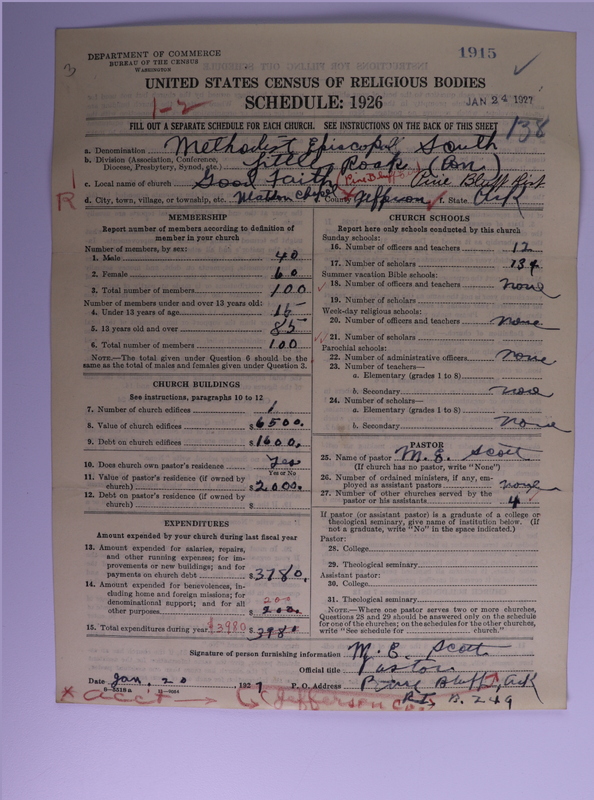 DEPARTMENT OF COMMERCE
BUREAU OF THE CENSUS
WASHINGTON
1915
3
UNITED STATES CENSUS OF RELIGIOUS BODIES
SCHEDULE: 1926
1-2
JAN 24 1927
FILL OUT A SEPARATE SCHEDULE FOR EACH CHURCH. SEE INSTRUCTIONS ON THE BACK OF THIS SHEET
138
a. Denomination Methodist Episcopal South
b. Division (Association, Conference, Diocese, Presbytery, Synod, etc.) Little Rock (Con)
c. Local name of church Good Faith (Pine Bluff Pine Bluff Dist
R
d. City, town, village, or township, etc. e. County Jefferson f. State Ark
MEMBERSHIP
Report number of members according to definition of member in your church
Number of members, by sex:
1. Male 40
2. Female 60
3. Total number of members 100
Number of members under and over 13 years old:
4. Under 13 years of age 15
5. 13 years old and over 85
6. Total number of members 100
NOTE.—The total given under Question 6 should be the same as the total of males and females given under Question 3.
CHURCH BUILDINGS
See instructions, paragraphs 10 to 12
7. Number of church edifices 1
8. Value of church edifices $6500.
9. Debt on church edifices $1600.
10. Does church own pastor's residence Yes
Yes or No
11. Value of pastor's residence (if owned by church) $2000.
12. Debt on pastor's residence (if owned by church) $
EXPENDITURES
Amount expended by your church during last fiscal year
13. Amount expended for salaries, repairs, and other running expenses; for improvements or new buildings; and for payments on church debt $3780.
14. Amount expended for benevolences, including home and foreign missions; for denominational support; and for all other purposes $200.
200
15. Total expenditures during year $3980 $3980
CHURCH SCHOOLS
Report here only schools conducted by this church
Sunday schools:
16. Number of officers and teachers 12
17. Number of scholars 134
Summer vacation Bible schools:
18. Number of officers and teachers none
19. Number of scholars
Week-day religious schools:
20. Number of officers and teachers none
21. Number of scholars
Parochial schools:
22. Number of administrative officers none
23. Number of teachers—
a. Elementary (grades 1 to 8)
b. Secondary
24. Number of scholars—
a. Elementary (grades 1 to 8)
b. Secondary none
PASTOR
25. Name of pastor M. E. Scott
(If church has no pastor, write "None")
26. Number of ordained ministers, if any, employed as assistant pastors none
27. Number of other churches served by the pastor or his assistants 4
If pastor (or assistant pastor) is a graduate of a college or theological seminary, give name of institution below. (If not a graduate, write "No" in the space indicated.)
Pastor:
28. College
29. Theological seminary
Assistant pastor:
30. College
31. Theological seminary
NOTE.—Where one pastor serves two or more churches, Questions 28 and 29 should be answered only on the schedule for one of the churches; on the schedules for the other churches, write "See schedule for church."
Signature of person furnishing information M. E. Scott
Official title Pastor
Date Jan. 20, 1927 P. O. Address Pine Bluff, Ark
* acc't → Jefferson Co. B. 249